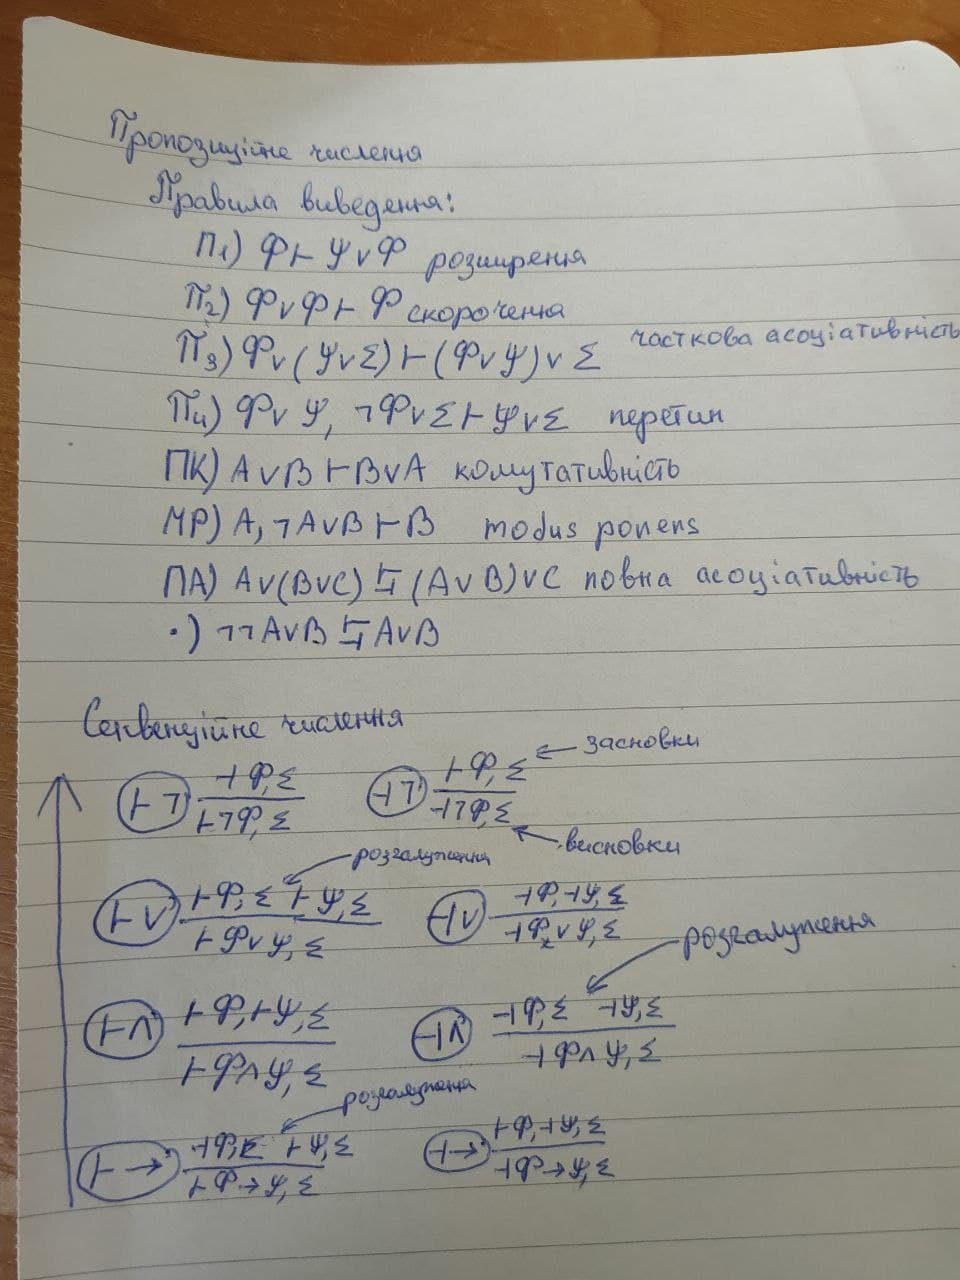 Пропозиційне числення
Правила виведення:
П1) Ф⊢ Ψ∨Ф розширення
П2) Ф∨Ф⊢ Ф скорочення
П3) Ф∨(Ψ∨Σ)⊢(Ф∨Ψ)∨Σ часткова асоціативність
П4) Ф∨Ψ, ¬Ф∨Σ⊢Ψ∨Σ перетин
ПК) A∨B⊢B∨A комутативність
MP) A, ¬A∨B⊢B modus ponens
ПА) A∨(B∨C)⊢⊣(A∨B)∨C повна асоціативність
·) ¬¬A∨B⊢⊣A∨B
Секвенційне числення
⊢¬ ⊣Ф,Σ ⊣¬ ⊢Ф,Σ ← засновки
⊢¬Ф,Σ ⊣¬Ф,Σ ← висновки
розгалуження
⊢∨ ⊢Ф,Σ ⊢Ψ,Σ ⊣∨ ⊣Ф,⊣Ψ,Σ
⊢Ф∨Ψ,Σ ⊣Ф∨Ψ,Σ
розгалуження
⊢∧ ⊢Ф,⊢Ψ,Σ ⊣∧ ⊣Ф,Σ ⊣Ψ,Σ
⊢Ф∧Ψ,Σ ⊣Ф∧Ψ,Σ
розгалуження
⊢→ ⊣Ф,Σ ⊢Ψ,Σ ⊣→ ⊢Ф,⊣Ψ,Σ
⊢Ф→Ψ,Σ ⊣Ф→Ψ,Σ